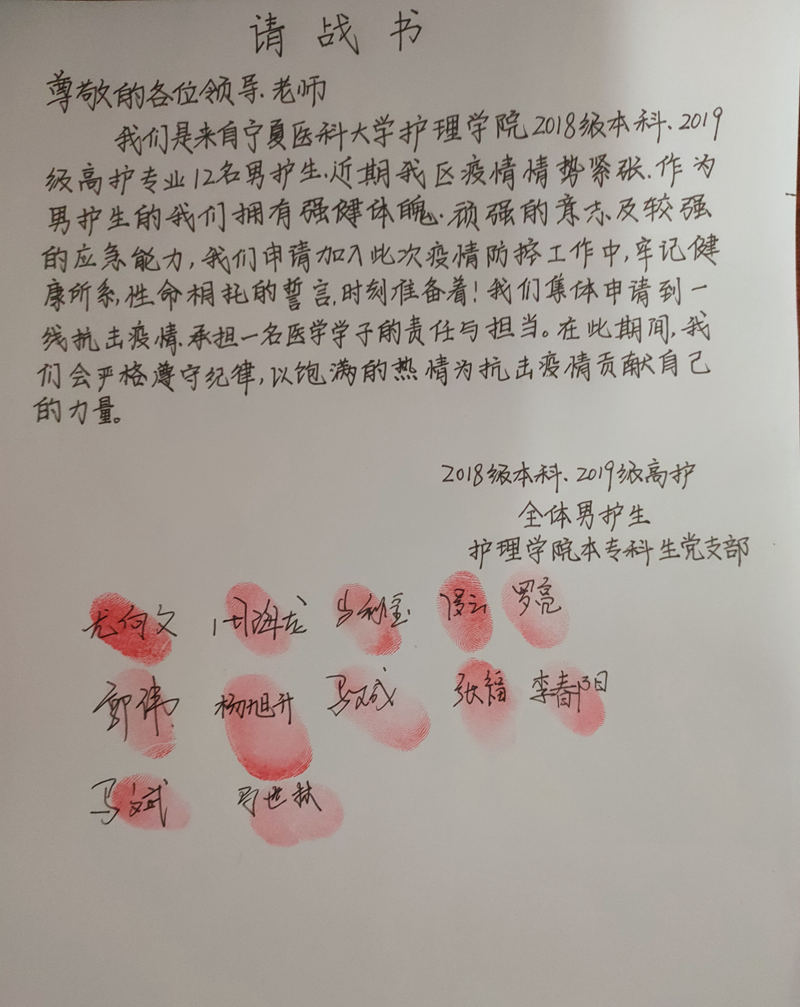 请战书
尊敬的各位领导.老师
我们是来自宁夏医科大学护理学院2018级本科、2019
级高护专业12名男护生.近期我区疫情情势紧张.作为
男护生的我们拥有强健体魄.顽强的意志及较强
的应急能力,我们申请加入此次疫情防控工作中,牢记健
康所系,性命相托的誓言,时刻准备着!我们集体申请到一
线抗击疫情.承担一名医学学子的责任与担当。在此期间,我
们会严格遵守纪律,以饱满的热情为抗击疫情贡献自己
的力量。
2018级本科、2019级高护
全体男护生
护理学院本专科生党支部
尤向文 周海龙 罗亮
郭伟 杨旭升 张福 李春阳
马文斌 马世林